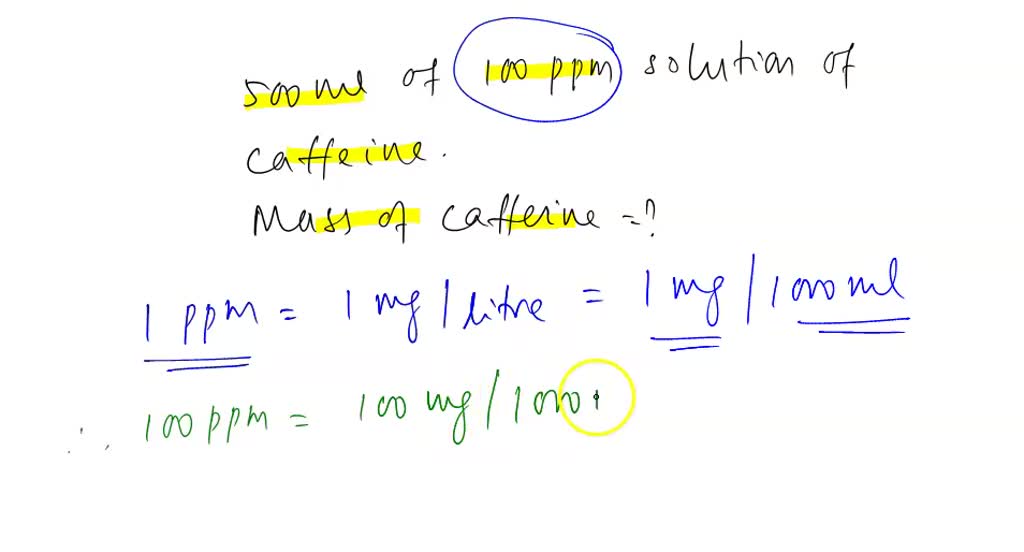 500 ml of 100 ppm solution of
caffeine.
Mass of caffeine = ?
1 ppm = 1 mg / litre = 1 mg / 1000 ml
∴ 100 ppm = 100 mg / 1000